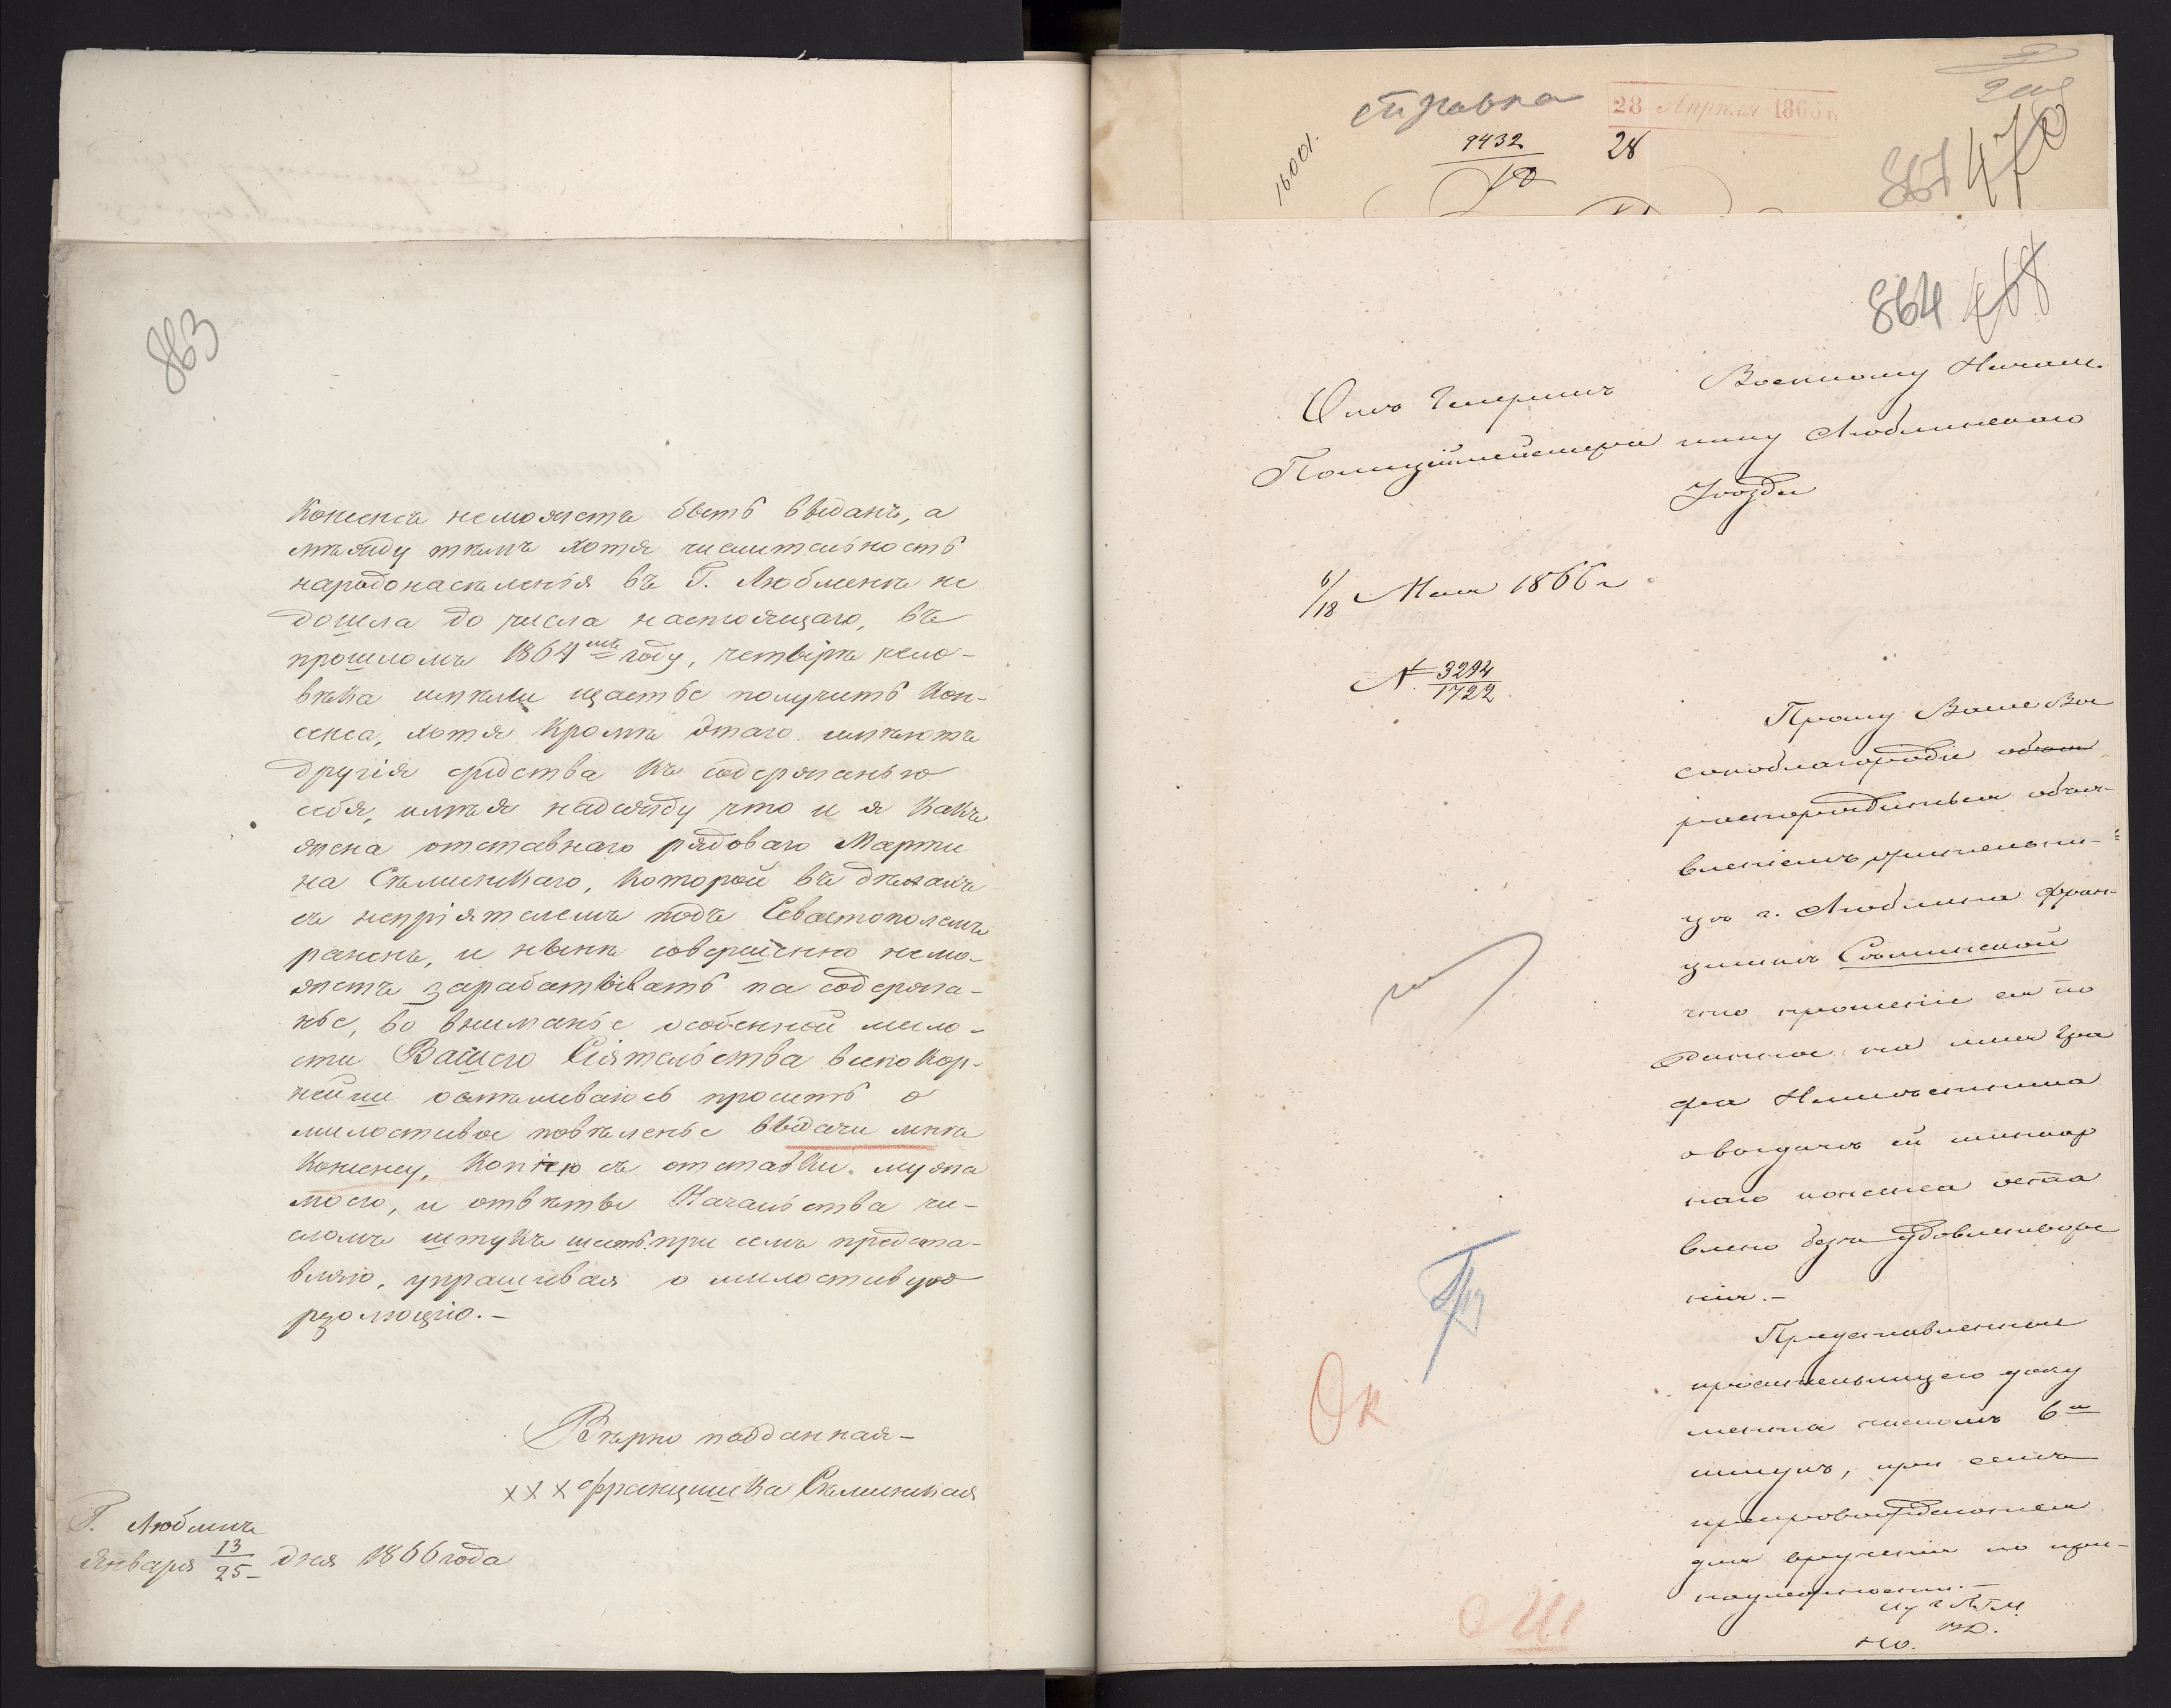 863
Консенсъ неможетъ быть выданъ, а
между тѣмъ хотя числительность
народонаселенья въ Г. Люблинѣ не
дошла до числа настоящаго, въ
прошломъ 1864мъ году, четыре чело-
вѣка имѣли щастье получить Кон-
сенса, хотя Кромѣ этаго имѣютъ
другія срѣдства къ содержанью
себя, имѣя надежду что и я какъ
жена отставнаго рядоваго Марти
на Сѣлинскаго, Которой въ дѣлахъ
съ непріятелемъ подъ Севастополемъ
раненъ, и нынѣ совершенно немо-
жетъ зарабатывать на содержа-
нье, во вниманье особенной мило-
сти Вашего Сіятельства всепокор-
нейши осмѣливаюсь просить о
милостивое повѣленье выдачи мнѣ
Консенсу, Копіею съ отставки мужа
моего, и отвѣты Начальства чи-
сломъ штукъ шесть при семъ предста-
вляю, упрашивая о милостивую
рзолюцію.-
Вѣрно подданная-
ххх Францишка Сѣлинская
Г. Люблинъ
Января 13/25 дня 1866 года
справка
28 Апрѣля 1866
9432/10
28
16001.
867 470
864 468
Отъ Генералъ
Полицiймейстера
Военному Началь
нику Люблинскаго
Уѣзда
6/18 Мая 1866 г
№ 3294/1722
Прошу Ваше Вы
сокоблагородіе
распоряд объя-
вленіемъ жительни-
цѣ г. Люблина Фран-
цишкѣ Сѣлинской
что прошеніе ея по
данное на имя Гра
фа Намѣстника
о выдачѣ ей шинкар
наго консенса оста
влено безъ удовлетворе
нія.-
Представленные
просительницею доку
менты числомъ 6
штукъ, при семъ
препровождаются
для врученія по при-
надлежности.-
Ок